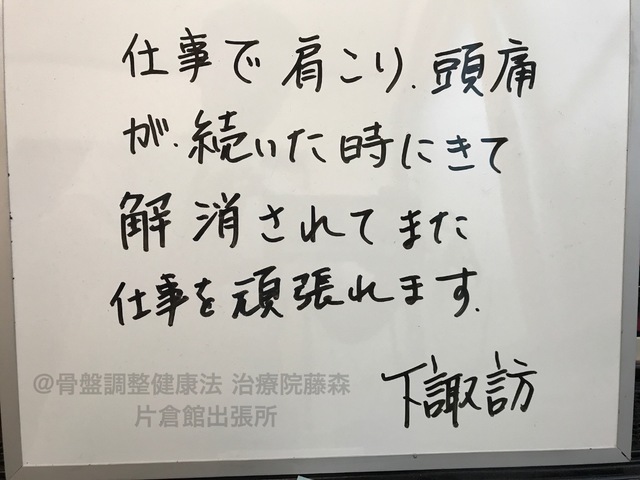 仕事で肩こり.頭痛
が.続いた時にきて
解消されてまた
仕事を頑張れます.
下諏訪
@骨盤調整健康法 治療院藤森
片倉館出張所